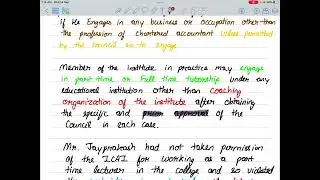 if He Engages in any business or occupation other than
the profession of chartered accountant unless permitted
by the council so to engage.
Member of the institute in practice may engage
in part time or Full time tutorship under any
educational institution other than coaching
organization of the institute after obtaining
the specific and prior approval of the
Council in each case.
Mr. Jayprakash had not taken permission
of the ICAI for working as a part
time lecturer in the college and so violated